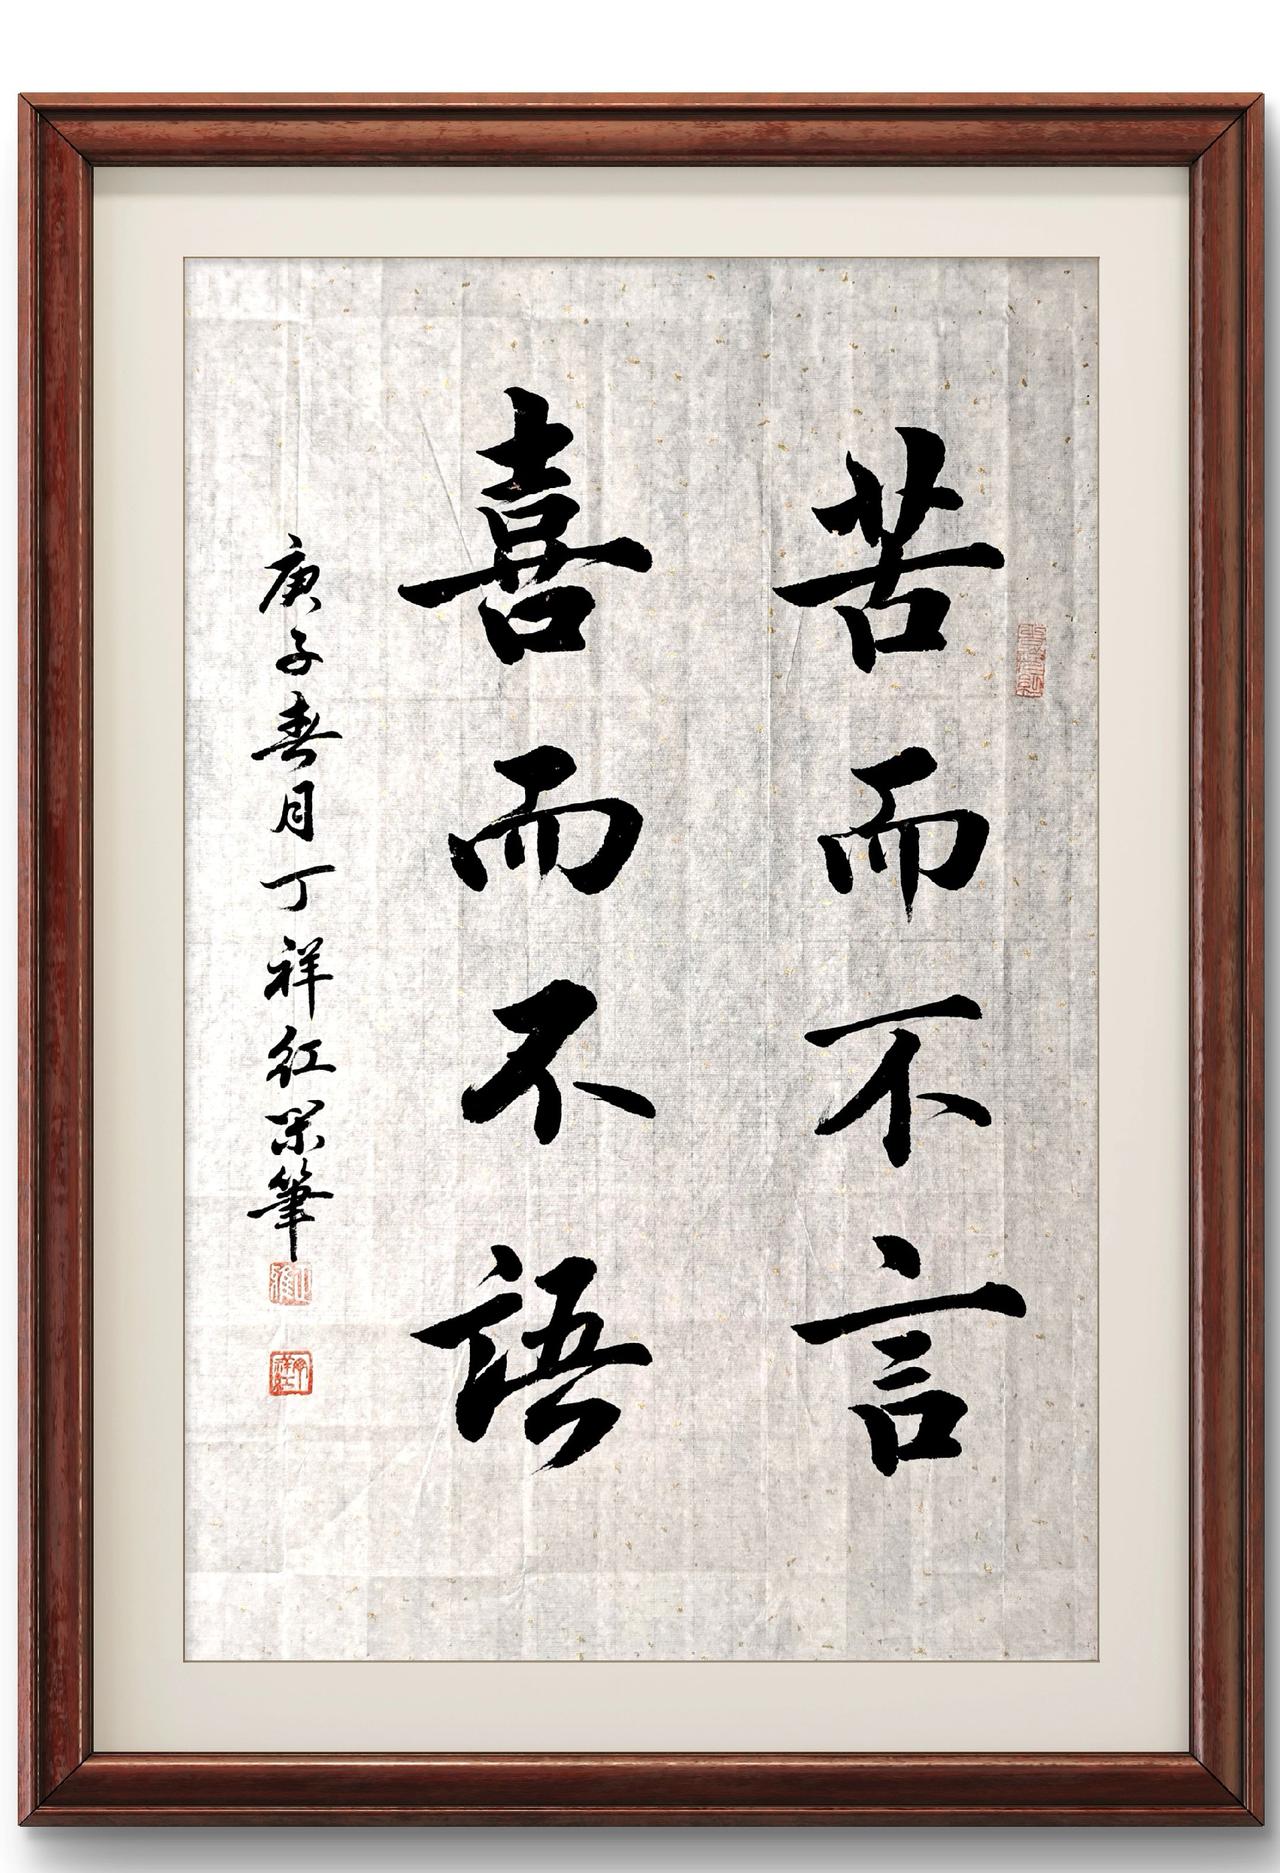 苦而不言
喜而不語
庚子春月丁祥红闲筆